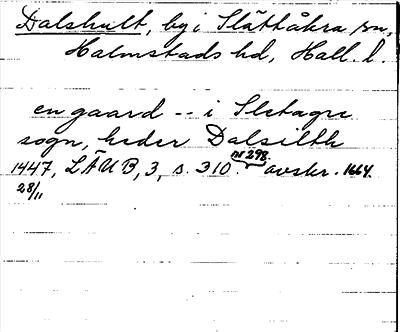 Dalshult, by i Slättåkra sn,
Halmstads hd, Hall. l.
en gaard -- i Sletagre
sogn, heder Dalsilth
1447, LÄUB, 3, s. 310. nr 298. avskr. 1664.
28/11